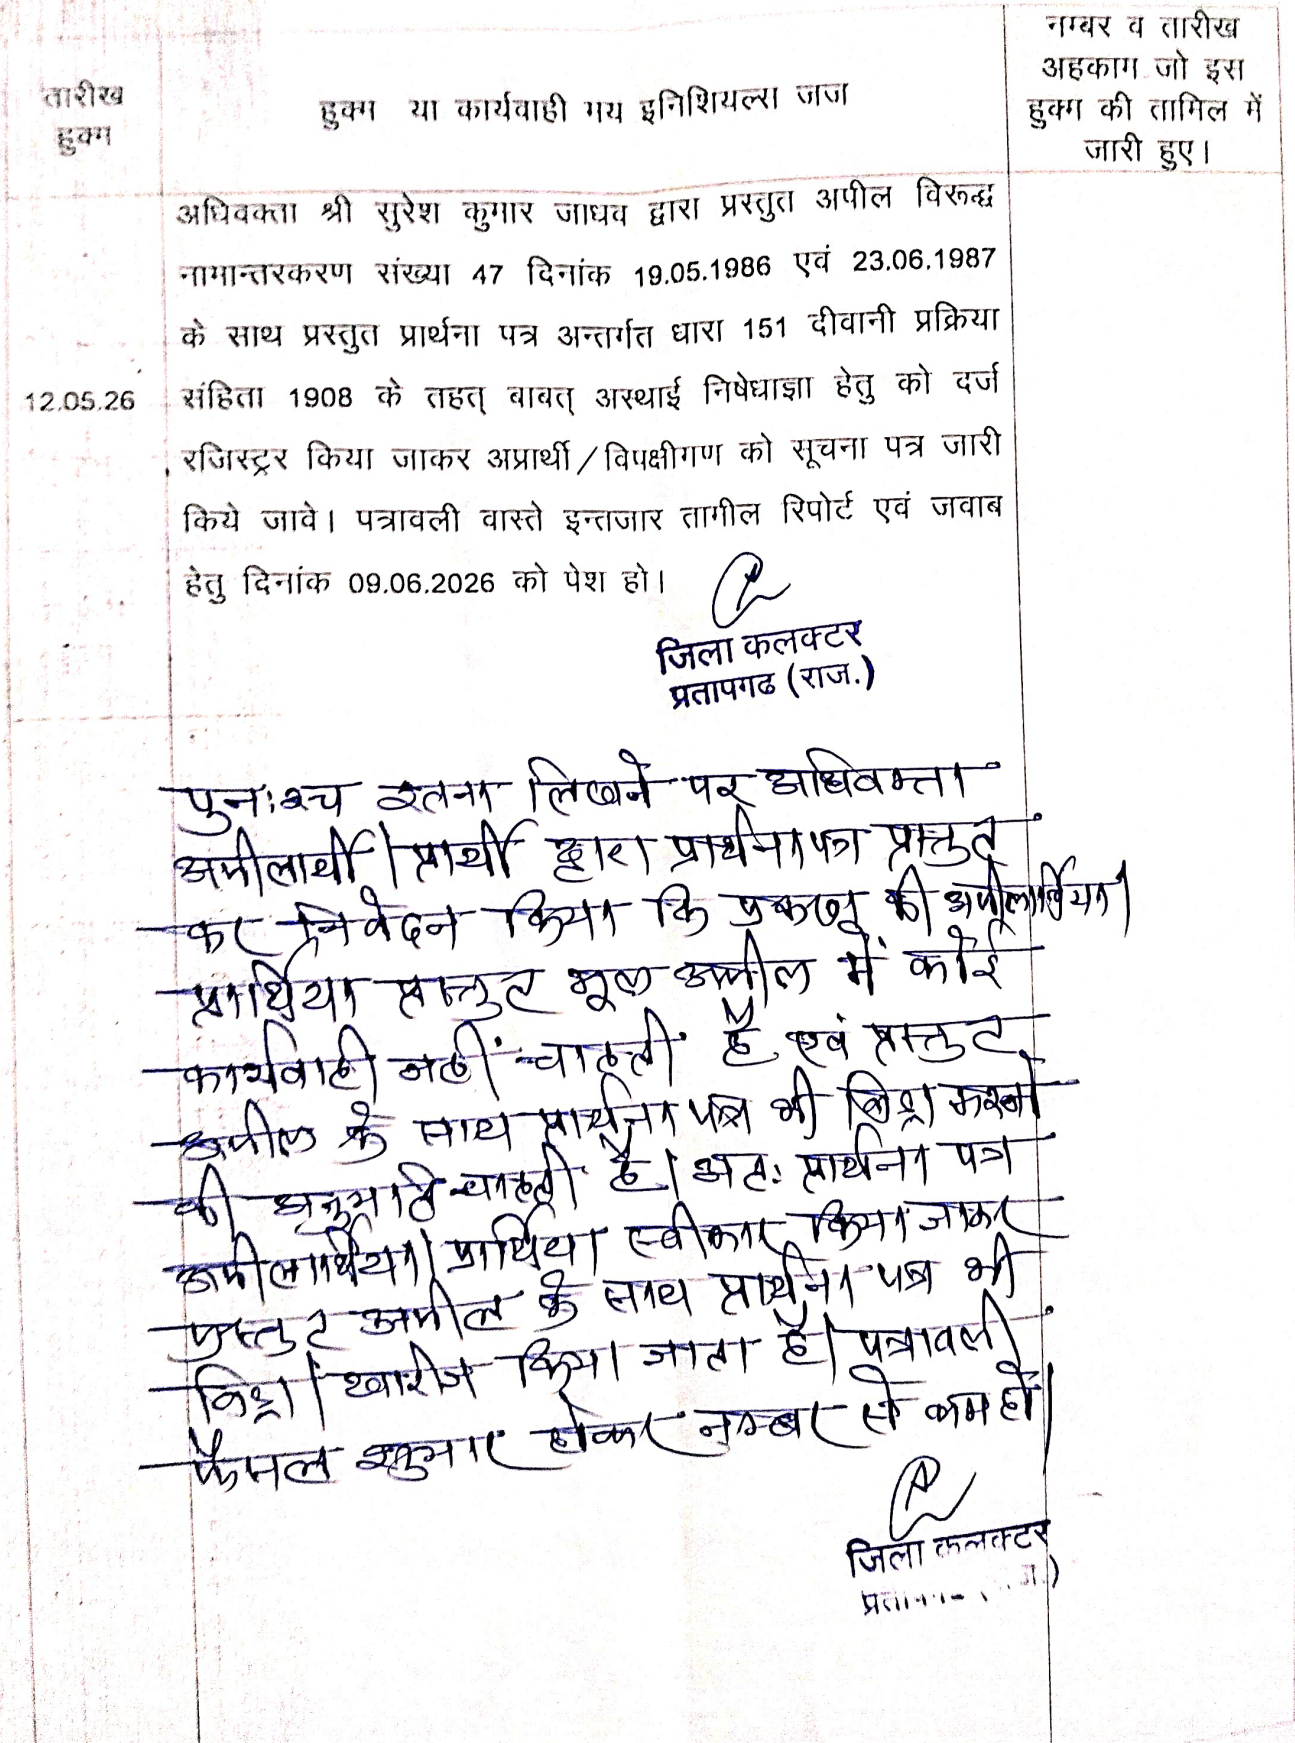 तारीख
हुक्म
हुक्म या कार्यवाही मय इनिशियल्स जज
नम्बर व तारीख
अहकाम जो इस
हुक्म की तामिल में
जारी हुए।
अधिवक्ता श्री सुरेश कुमार जाधव द्वारा प्रस्तुत अपील विरूद्ध
नामान्तरकरण संख्या 47 दिनांक 19.05.1986 एवं 23.06.1987
के साथ प्रस्तुत प्रार्थना पत्र अन्तर्गत धारा 151 दीवानी प्रक्रिया
12.05.26
संहिता 1908 के तहत् बाबत् अस्थाई निषेधाज्ञा हेतु को दर्ज
रजिस्ट्रर किया जाकर अप्रार्थी/विपक्षीगण को सूचना पत्र जारी
किये जावे। पत्रावली वास्ते इन्तजार तामील रिपोर्ट एवं जवाब
हेतु दिनांक 09.06.2026 को पेश हो।
जिला कलक्टर
प्रतापगढ (राज.)
पुनःश्च इतना लिखने पर अधिवक्ता
अपीलार्थी/प्रार्थी द्वारा प्रार्थना पत्र प्रस्तुत
कर निवेदन किया कि प्रकरण की अपीलार्थिया/
प्रार्थिया प्रस्तुत मूल अपील में कोई
कार्यवाही नहीं चाहती है एवं प्रस्तुत
अपील के साथ प्रार्थना पत्र भी विड्रा करने
की अनुमति चाहती है। अतः प्रार्थना पत्र
अपीलार्थिया/प्रार्थिया स्वीकार किया जाकर
प्रस्तुत अपील के साथ प्रार्थना पत्र भी
विड्रा/खारीज किया जाता है। पत्रावली
फैसल शुमार होकर नम्बर से कम हो।
जिला कलक्टर